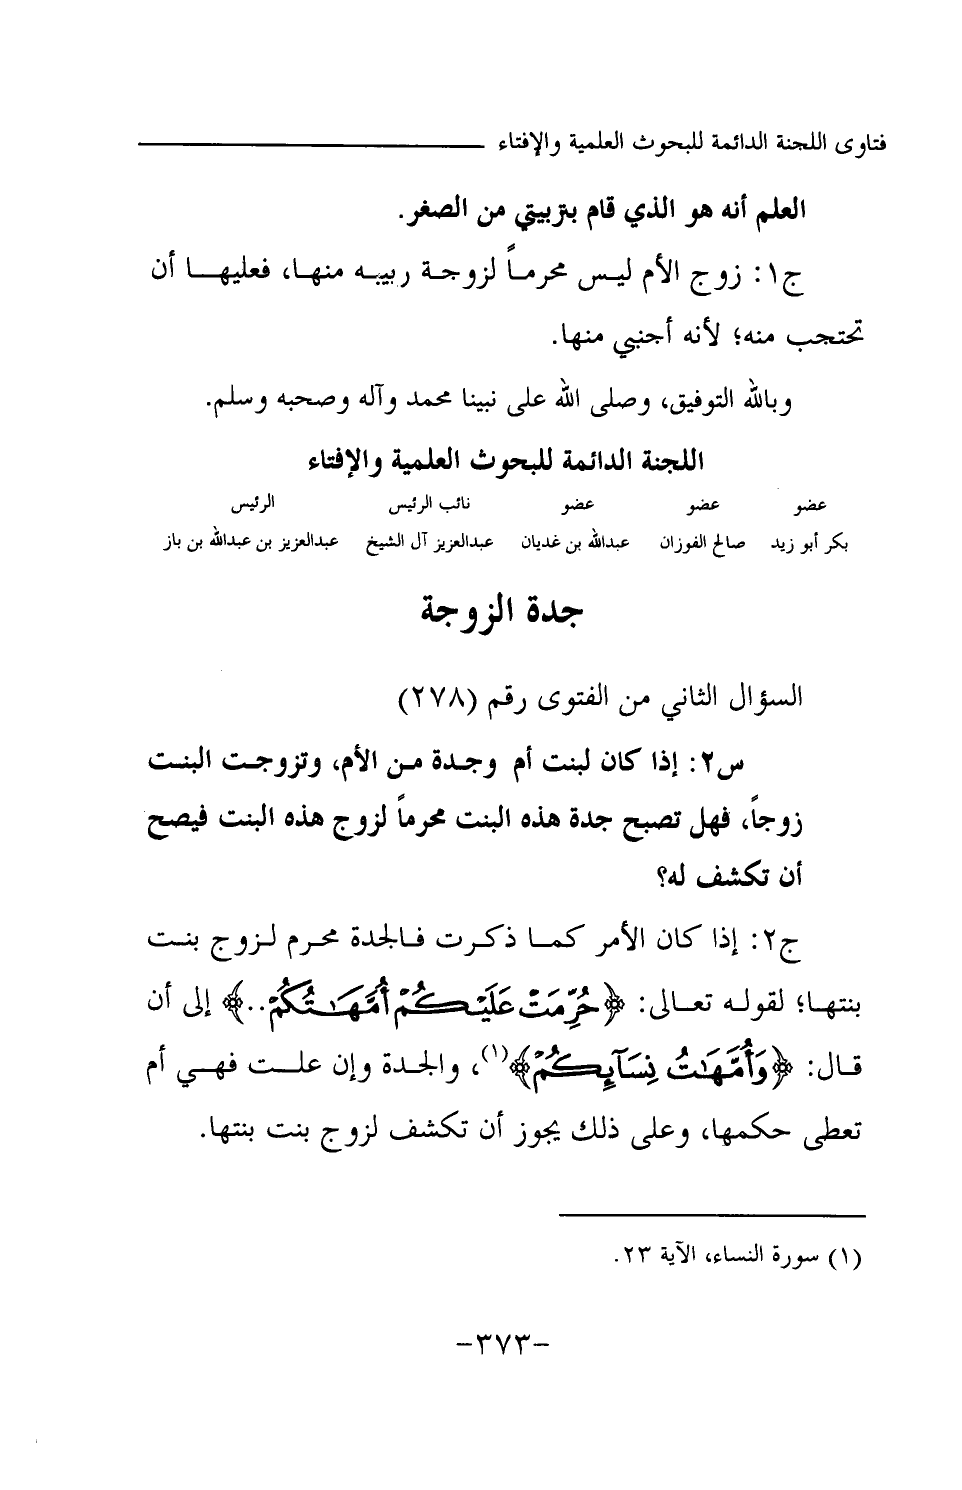 فتاوى اللجنة الدائمة للبحوث العلمية والإفتاء
العلم أنه هو الذي قام بتربيتي من الصغر.
ج١: زوج الأم ليس محرماً لزوجة ربيبه منها، فعليها أن
تحتجب منه؛ لأنه أجنبي منها.
وبالله التوفيق، وصلى الله على نبينا محمد وآله وصحبه وسلم.
اللجنة الدائمة للبحوث العلمية والإفتاء
عضو عضو عضو نائب الرئيس الرئيس
بكر أبو زيد صالح الفوزان عبدالله بن غديان عبدالعزيز آل الشيخ عبدالعزيز بن عبدالله بن باز
جدة الزوجة
السؤال الثاني من الفتوى رقم (٢٧٨)
س٢: إذا كان لبنت أم وجدة من الأم، وتزوجت البنت
زوجاً، فهل تصبح جدة هذه البنت محرماً لزوج هذه البنت فيصح
أن تكشف له؟
ج٢: إذا كان الأمر كما ذكرت فالجدة محرم لزوج بنت
بنتها؛ لقوله تعالى: ﴿حُرِّمَتْ عَلَيْكُمْ أُمَّهَٰتُكُمْ..﴾ إلى أن
قال: ﴿وَأُمَّهَٰتُ نِسَآئِكُمْ﴾(١)، والجدة وإن علت فهي أم
تعطى حكمها، وعلى ذلك يجوز أن تكشف لزوج بنت بنتها.
(١) سورة النساء، الآية ٢٣.
-٣٧٣-